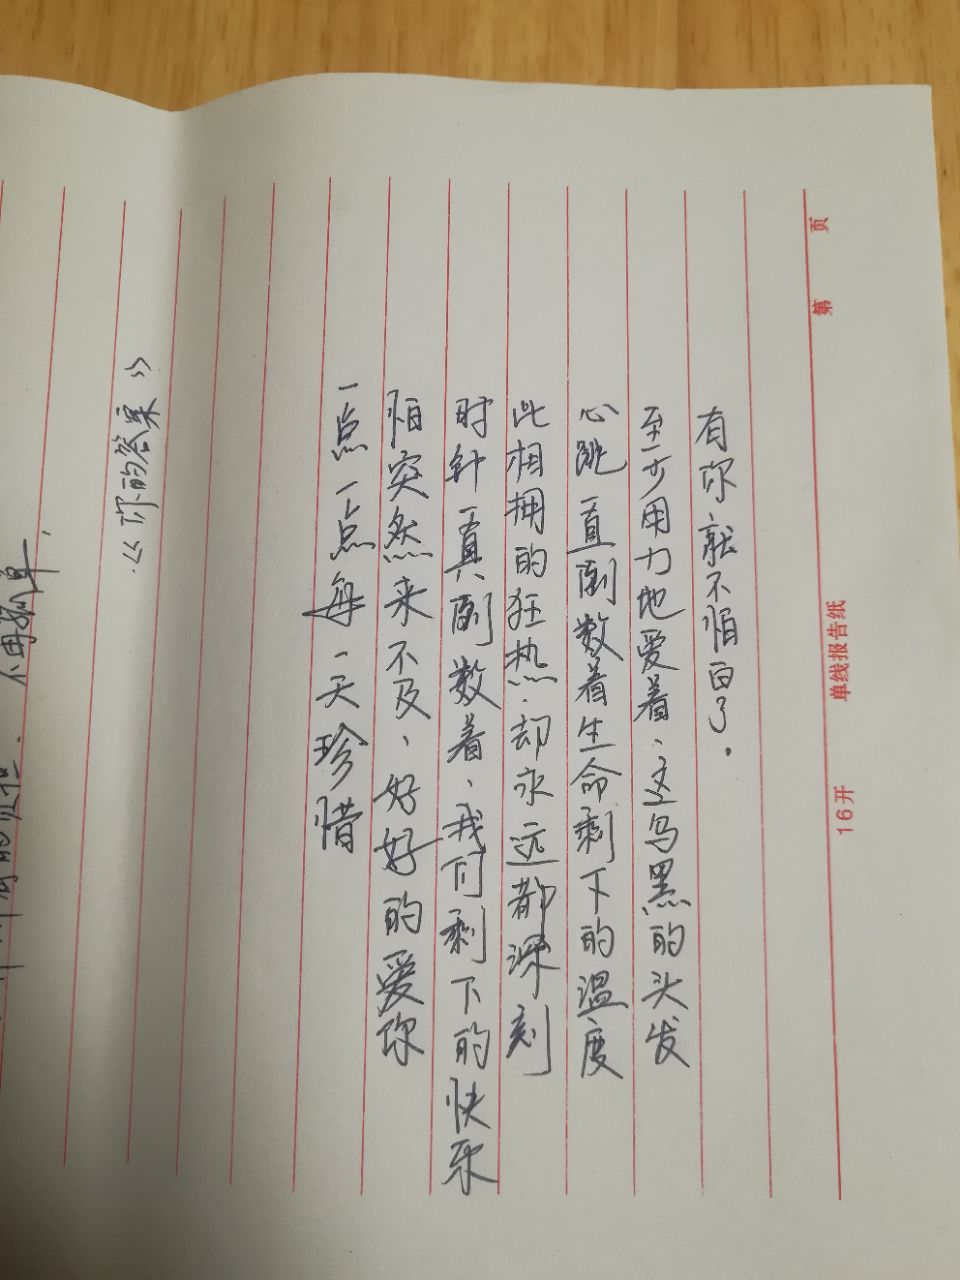 不再孤单.
《你的答案》
一点一点每一天珍惜
怕突然来不及、好好的爱你
时针一直倒数着、我们剩下的快乐
此相拥的狂热.却永远都深刻
心跳一直倒数着生命剩下的温度
至少用力地爱着、这乌黑的头发
有你就不怕白了.
第 页
单线报告纸
16开